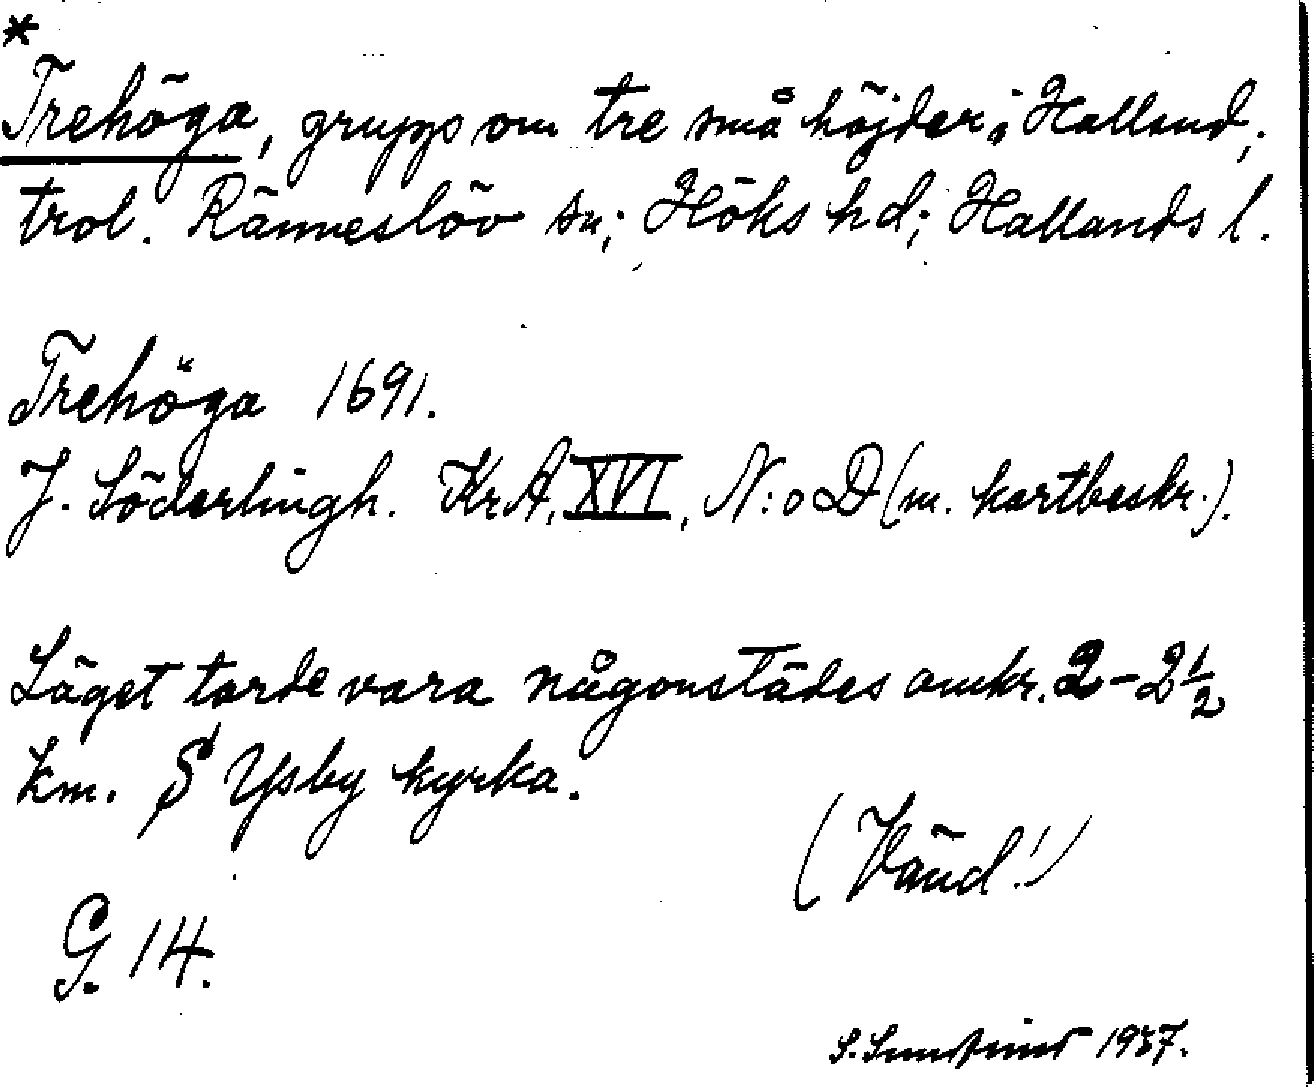 *
Trehöga, grupp om tre små höjder i Halland;
trol. Ränneslöv sn; Höks hd; Hallands l.
Trehöga 1691.
J. Söderlingh. Kr.A. XVI, N:o D (m. kartbeskr.).
Läget torde vara någonstädes omkr. 2-2½
km. S Ysby kyrka.
(Vänd!)
G. 14.
S. 1937.